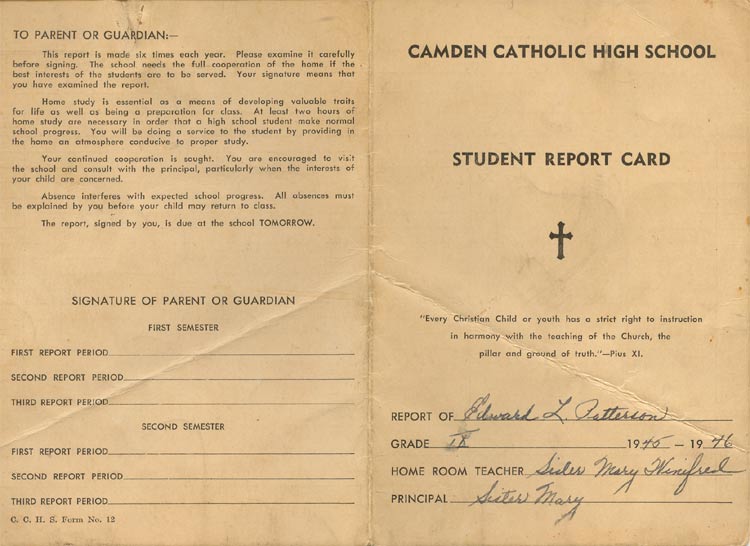 TO PARENT OR GUARDIAN:—
This report is made six times each year. Please examine it carefully
before signing. The school needs the full cooperation of the home if the
best interests of the students are to be served. Your signature means that
you have examined the report.
Home study is essential as a means of developing valuable traits
for life as well as being a preparation for class. At least two hours of
home study are necessary in order that a high school student make normal
school progress. You will be doing a service to the student by providing in
the home an atmosphere conducive to proper study.
Your continued cooperation is sought. You are encouraged to visit
the school and consult with the principal, particularly when the interests of
your child are concerned.
Absence interferes with expected school progress. All absences must
be explained by you before your child may return to class.
The report, signed by you, is due at the school TOMORROW.
SIGNATURE OF PARENT OR GUARDIAN
FIRST SEMESTER
FIRST REPORT PERIOD
SECOND REPORT PERIOD
THIRD REPORT PERIOD
SECOND SEMESTER
FIRST REPORT PERIOD
SECOND REPORT PERIOD
THIRD REPORT PERIOD
C. C. H. S. Form No. 12
CAMDEN CATHOLIC HIGH SCHOOL
STUDENT REPORT CARD
"Every Christian Child or youth has a strict right to instruction
in harmony with the teaching of the Church, the
pillar and ground of truth."—Pius XI.
REPORT OF Edward L. Patterson
GRADE IX 1945 — 1946
HOME ROOM TEACHER Sister Mary Winifred
PRINCIPAL Sister Mary